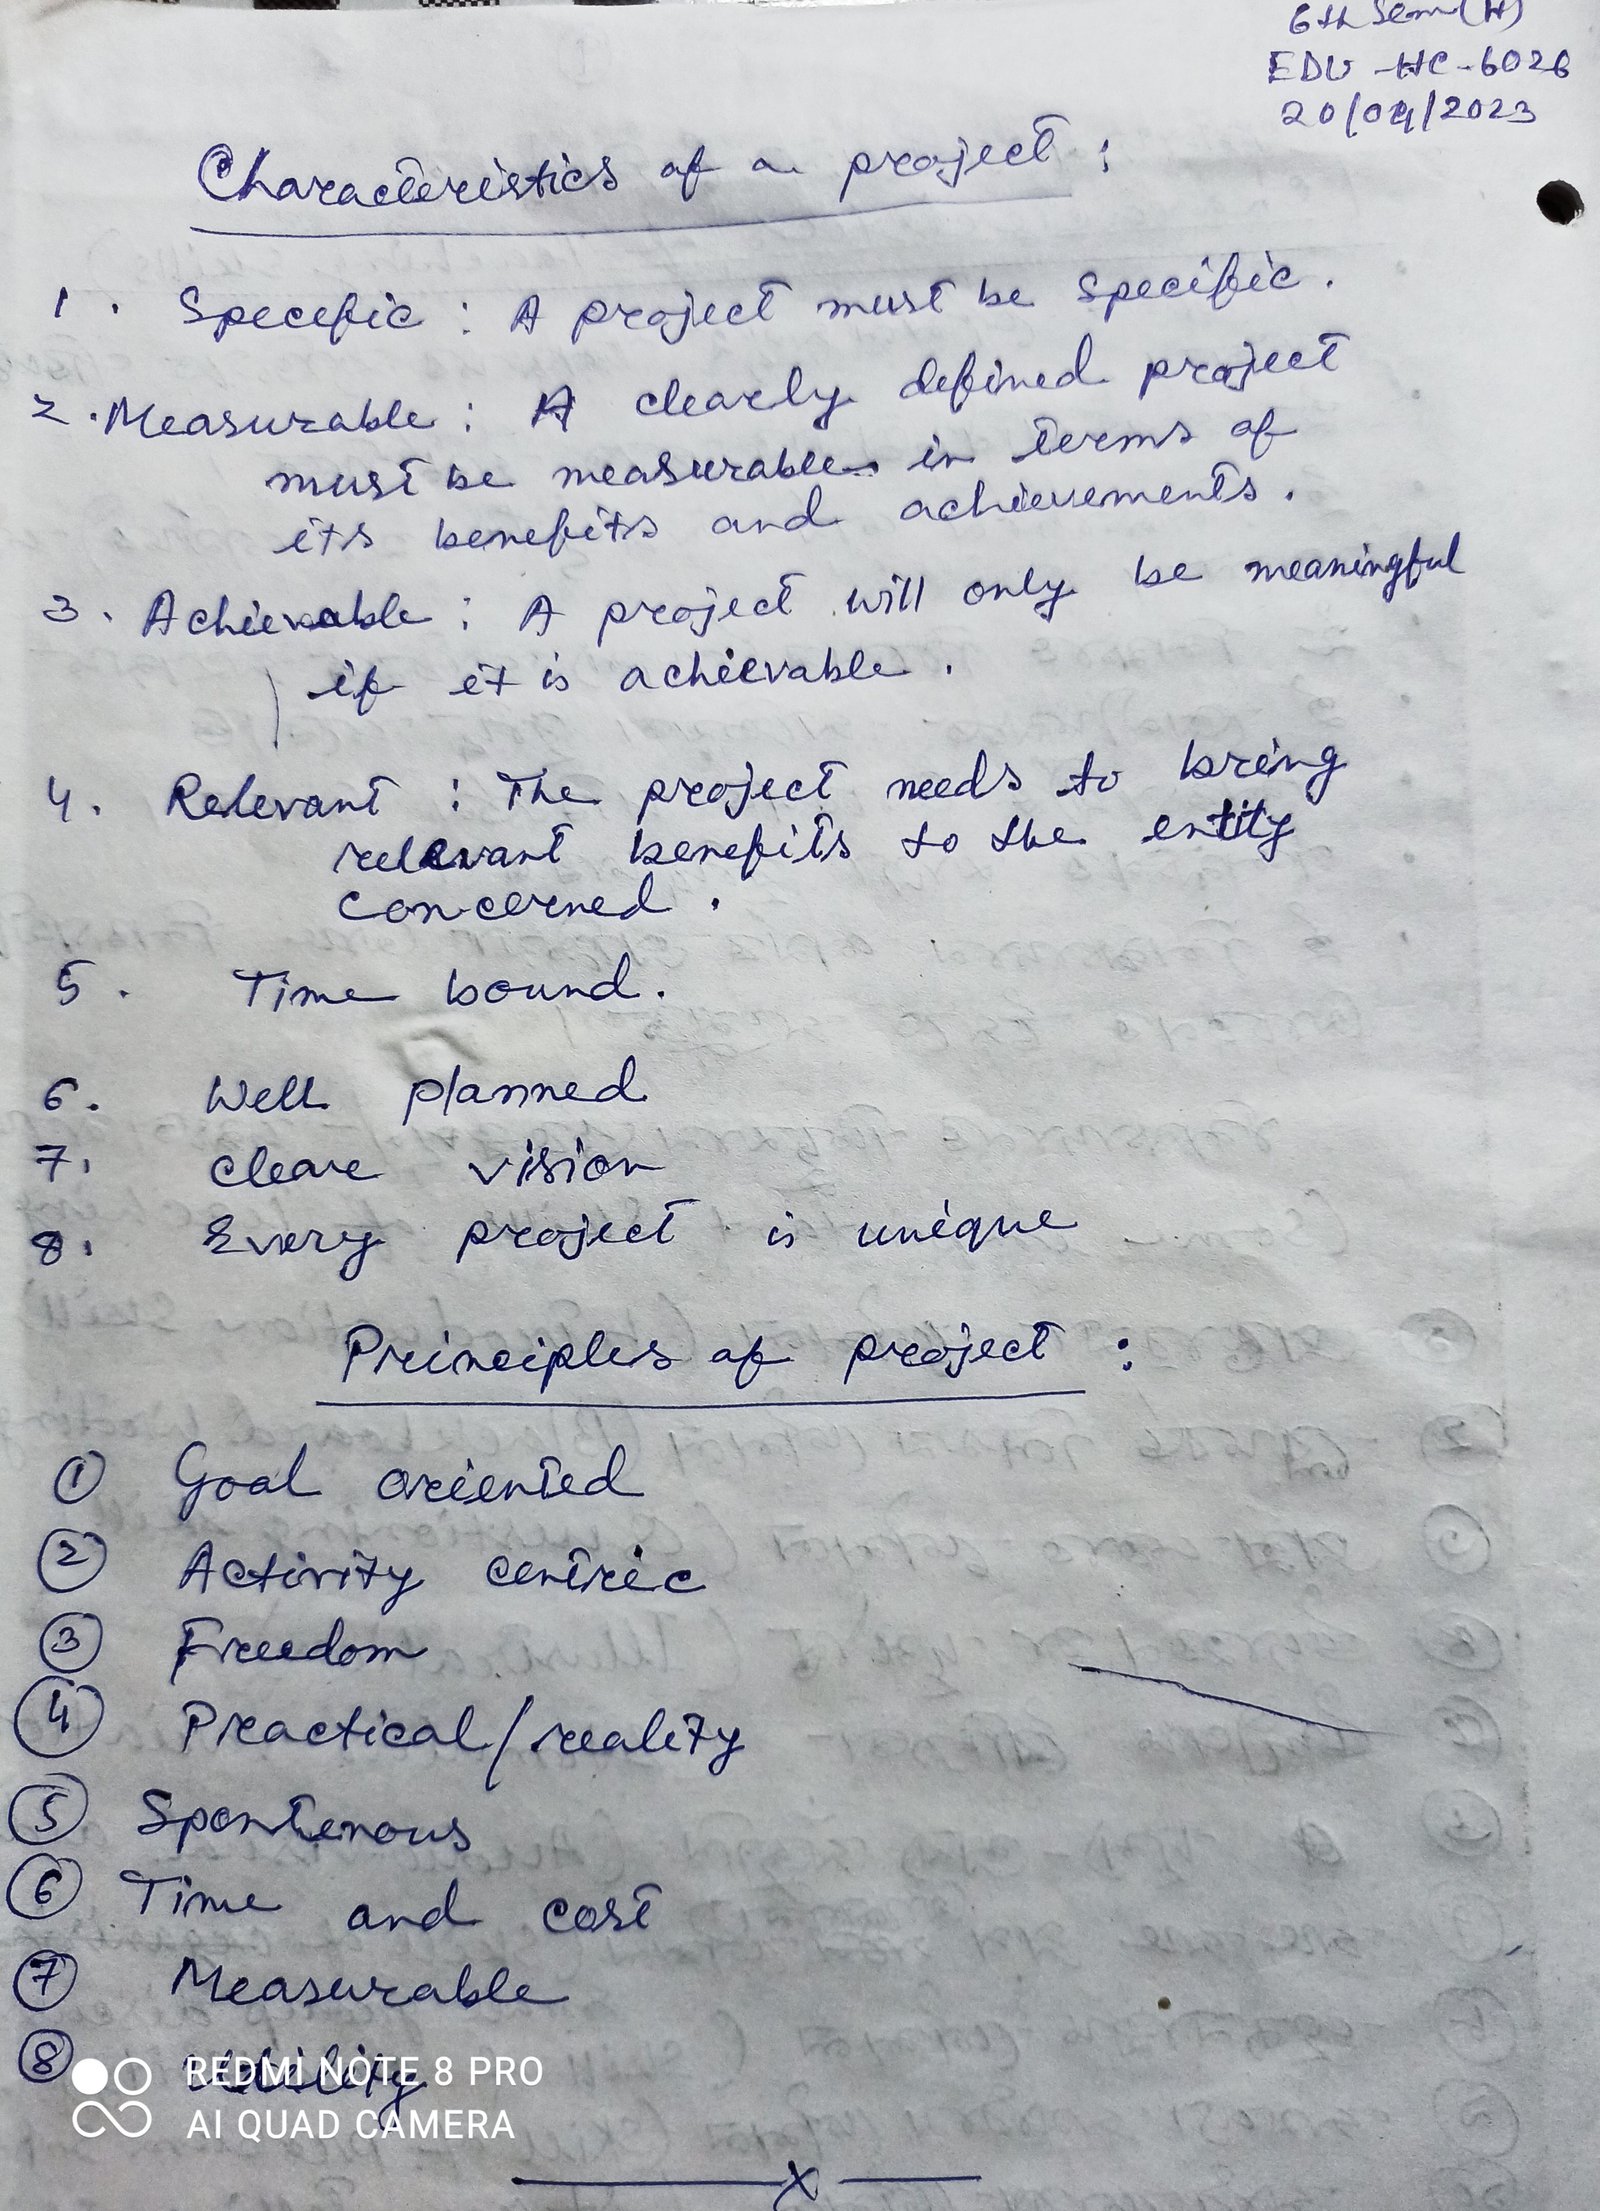 6th Sem (H)
EDU-HC-6026
20/04/2023
Characteristics of a project :
1. Specefic : A project must be specific.
2. Measurable : A clearly defined project
must be measurable in terms of
its benefits and achievements.
3. Achievable : A project will only be meaningful
if it is achievable.
4. Relevant : The project needs to bring
relevant benefits to the entity
concerned.
5. Time bound.
6. Well planned
7. Clear vision
8. Every project is unique
Principles of project :
① Goal oriented
② Activity centric
③ Freedom
④ Practical/reality
⑤ Spontenous
⑥ Time and cost
⑦ Measurable
⑧ Utility
REDMI NOTE 8 PRO
AI QUAD CAMERA
X